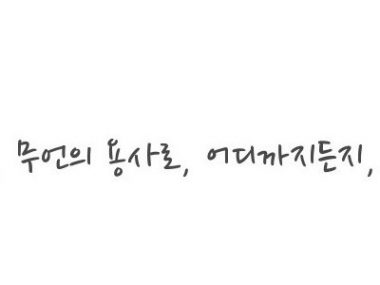 무언의 용사로, 어디까지든지,